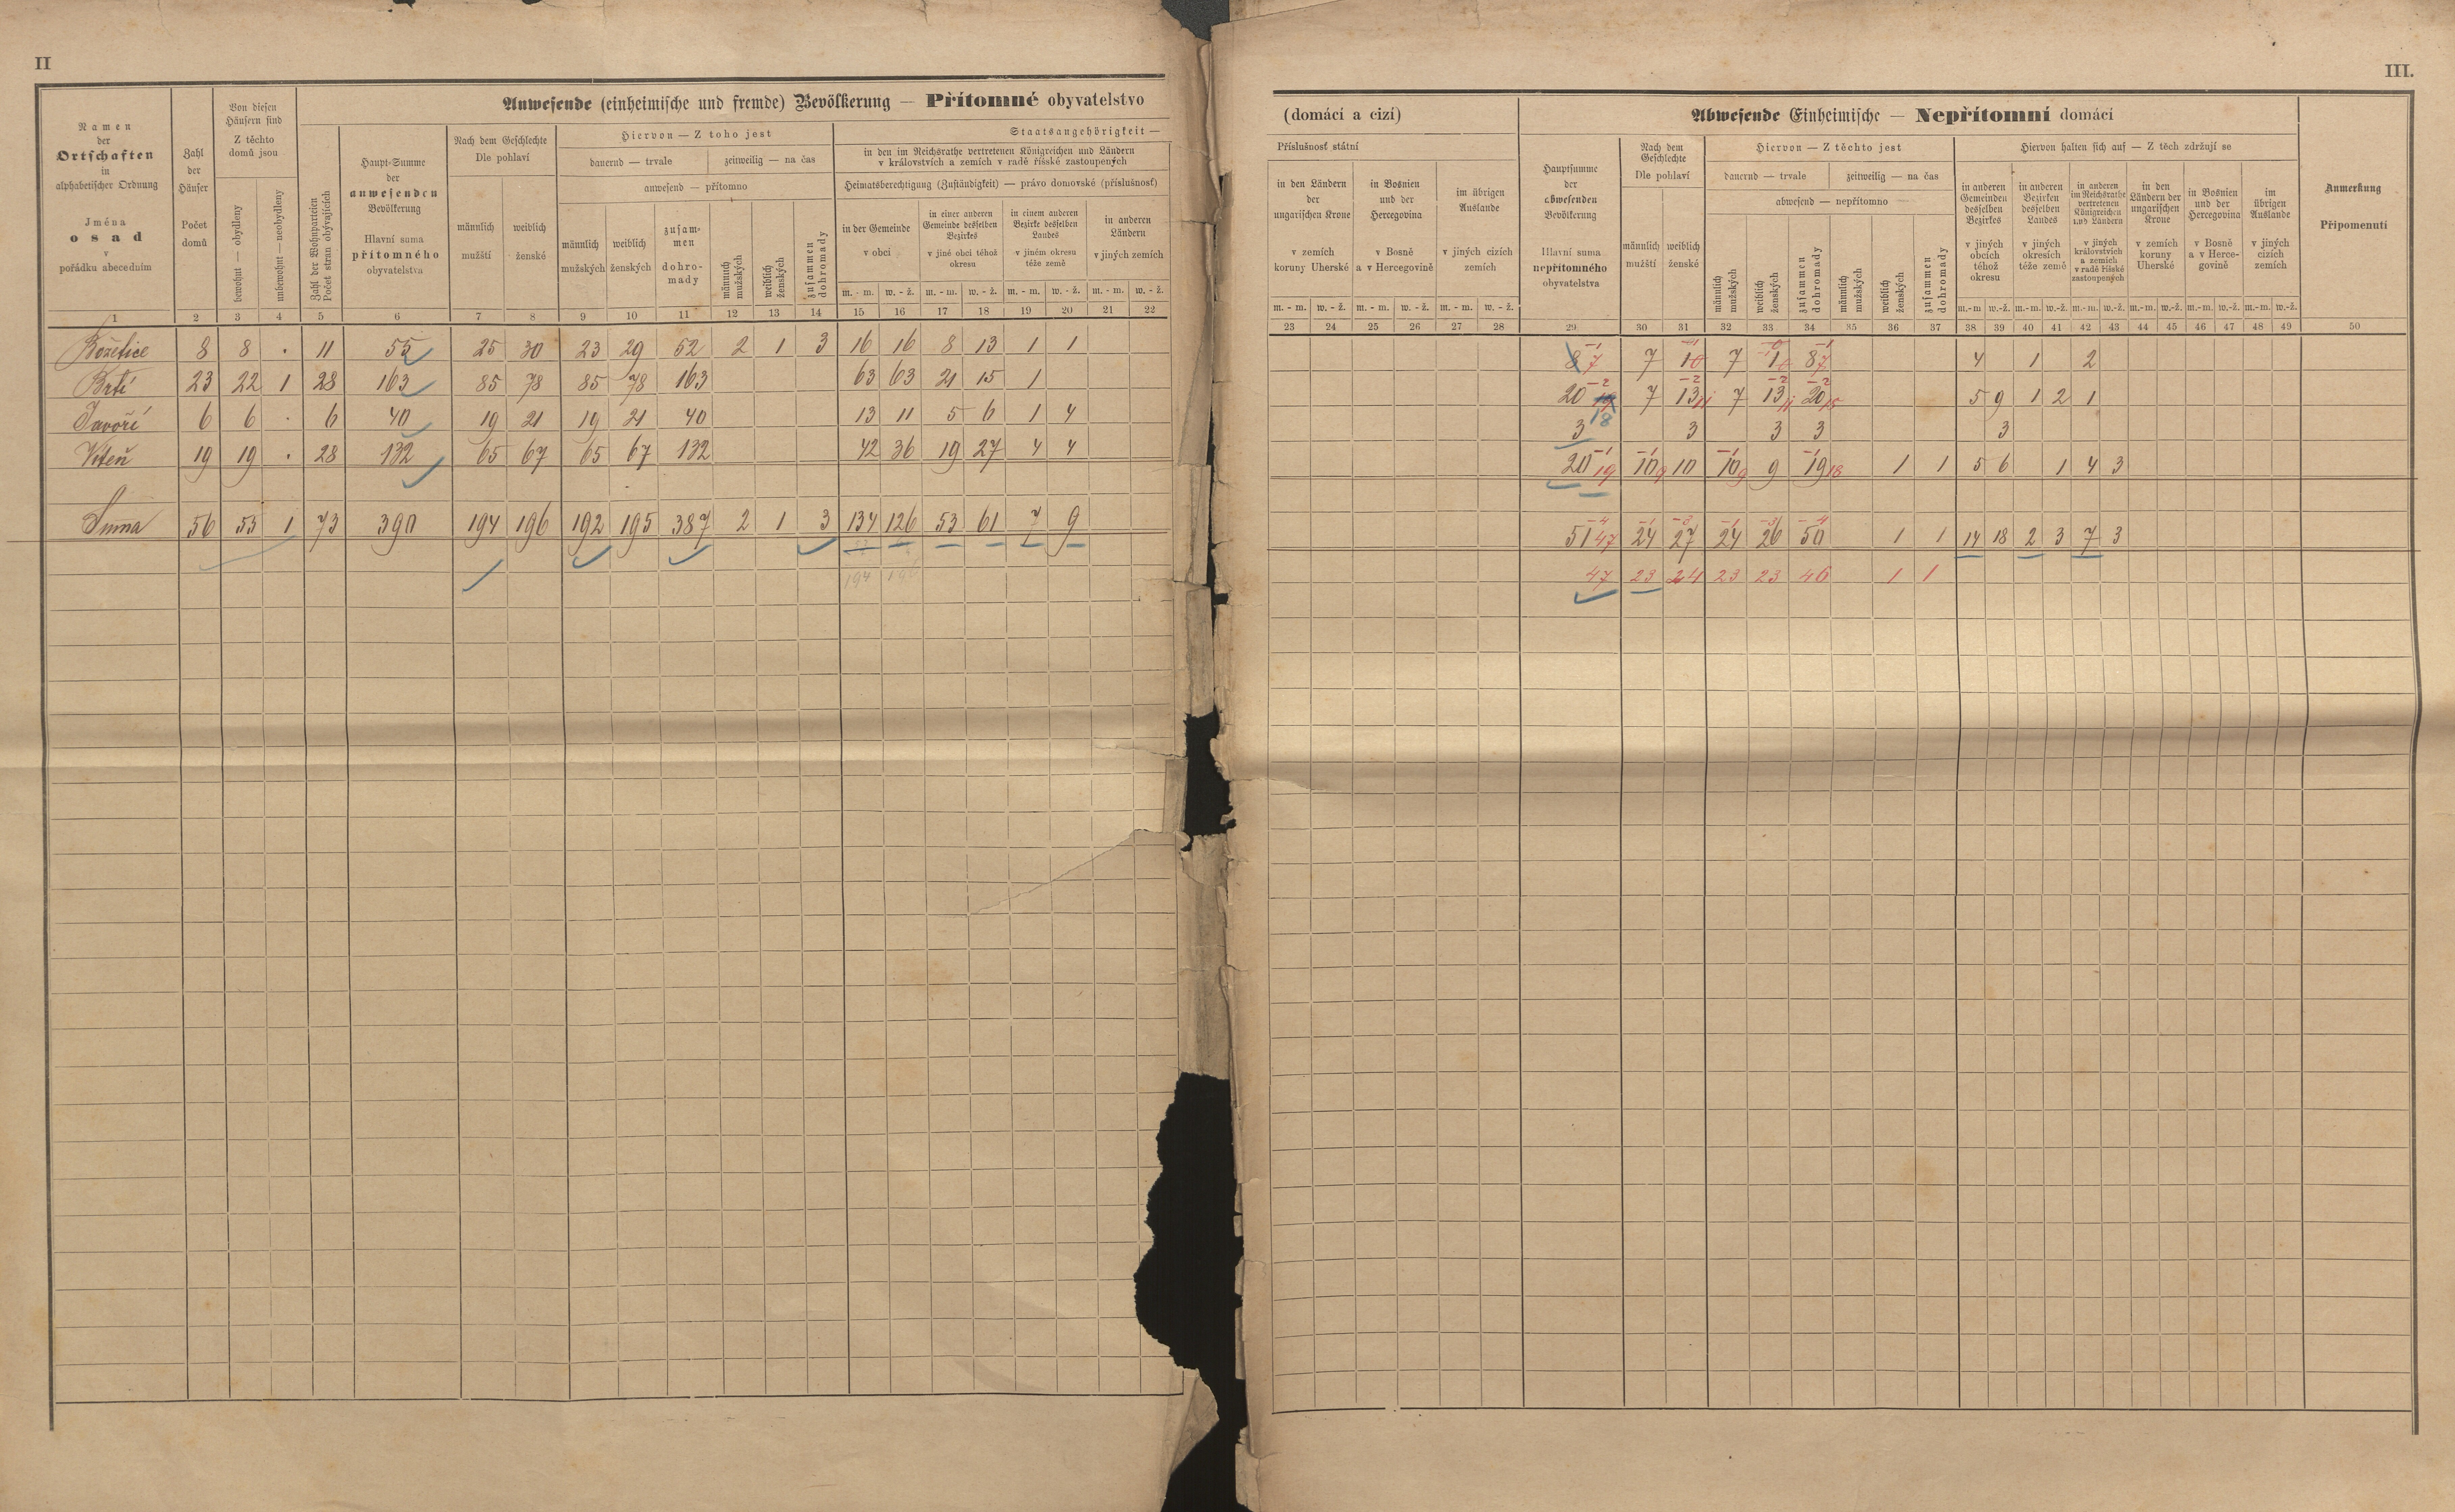 II
III.
Anwesende (einheimische und fremde) Bevölkerung — Přítomné obyvatelstvo
(domácí a cizí)
Abwesende Einheimische — Nepřítomní domácí
Namen
der
Ortschaften
in
alphabetischer Ordnung
Jména
osad
v
pořádku abecedním
Zahl
der
Häuser
Počet
domů
Von diesen
Häusern sind
Z těchto
domů jsou
bewohnt — obydleny
unbewohnt — neobydleny
Zahl der Wohnparteien
Počet stran obývajících
Haupt-Summe
der
anwesenden
Bevölkerung
Hlavní suma
přítomného
obyvatelstva
Nach dem Geschlechte
Dle pohlaví
männlich
mužští
weiblich
ženské
Hiervon — Z toho jest
dauernd — trvale
zeitweilig — na čas
anwesend — přítomno
männlich
mužských
weiblich
ženských
zusam-
men
dohro-
mady
männlich
mužských
weiblich
ženských
zusammen
dohromady
Staatsangehörigkeit —
in den im Reichsrathe vertretenen Königreichen und Ländern
v královstvích a zemích v radě říšské zastoupených
Heimatsberechtigung (Zuständigkeit) — právo domovské (příslušnosť)
in der Gemeinde
v obci
in einer anderen
Gemeinde desselben
Bezirkes
v jiné obci téhož
okresu
in einem anderen
Bezirke desselben
Landes
v jiném okresu
téže země
in anderen
Ländern
v jiných zemích
m. - m. w. - ž. m. - m. w. - ž. m. - m. w. - ž. m. - m. w. - ž.
Příslušnosť státní
in den Ländern
der
ungarischen Krone
v zemích
koruny Uherské
in Bosnien
und der
Hercegovina
v Bosně
a v Hercegovině
im übrigen
Auslande
v jiných cizích
zemích
m. - m. w. - ž. m. - m. w. - ž. m. - m. w. - ž.
Hauptsumme
der
abwesenden
Bevölkerung
Hlavní suma
nepřítomného
obyvatelstva
Nach dem
Geschlechte
Dle pohlaví
männlich
mužští
weiblich
ženské
Hiervon — Z těchto jest
dauernd — trvale
zeitweilig — na čas
abwesend — nepřítomno
männlich
mužských
weiblich
ženských
zusammen
dohromady
männlich
mužských
weiblich
ženských
zusammen
dohromady
Hiervon halten sich auf — Z těch zdržují se
in anderen
Gemeinden
desselben
Bezirkes
v jiných
obcích
téhož
okresu
in anderen
Bezirken
desselben
Landes
v jiných
okresích
téže země
in anderen
im Reichsrathe
vertretenen
Königreichen
und Ländern
v jiných
královstvích
a zemích
v radě říšské
zastoupených
in den
Ländern der
ungarischen
Krone
v zemích
koruny
Uherské
in Bosnien
und der
Hercegovina
v Bosně
a v Herce-
govině
im
übrigen
Auslande
v jiných
cizích
zemích
m.-m w.-ž. m.-m. w.-ž. m.-m. w.-ž. m.-m. w.-ž. m.-m. w.-ž. m.-m. w.-ž.
Anmerkung
Připomenutí
1 2 3 4 5 6 7 8 9 10 11 12 13 14 15 16 17 18 19 20 21 22
23 24 25 26 27 28 29 30 31 32 33 34 35 36 37 38 39 40 41 42 43 44 45 46 47 48 49 50
Božetice 8 8 . 11 55 25 30 23 29 52 2 1 3 16 16 8 13 1 1
Brtí 23 22 1 28 163 85 78 85 78 163 63 63 21 15 1
Javoří 6 6 . 6 40 19 21 19 21 40 13 11 5 6 1 4
Vsteň 19 19 . 28 132 65 67 65 67 132 42 36 19 27 4 4
Suma 56 55 1 73 390 194 196 192 195 387 2 1 3 134 126 53 61 7 9
194 196
8 7 7 1 0 7 1 0 8 7 4 1 2
20 18 7 13 11 7 13 11 20 5 9 1 2 1
3 3 3 3 3
20 19 10 9 10 10 9 9 19 18 1 1 5 6 1 4 3
51 47 24 27 24 26 50 1 1 14 18 2 3 7 3
47 23 24 23 23 46 1 1